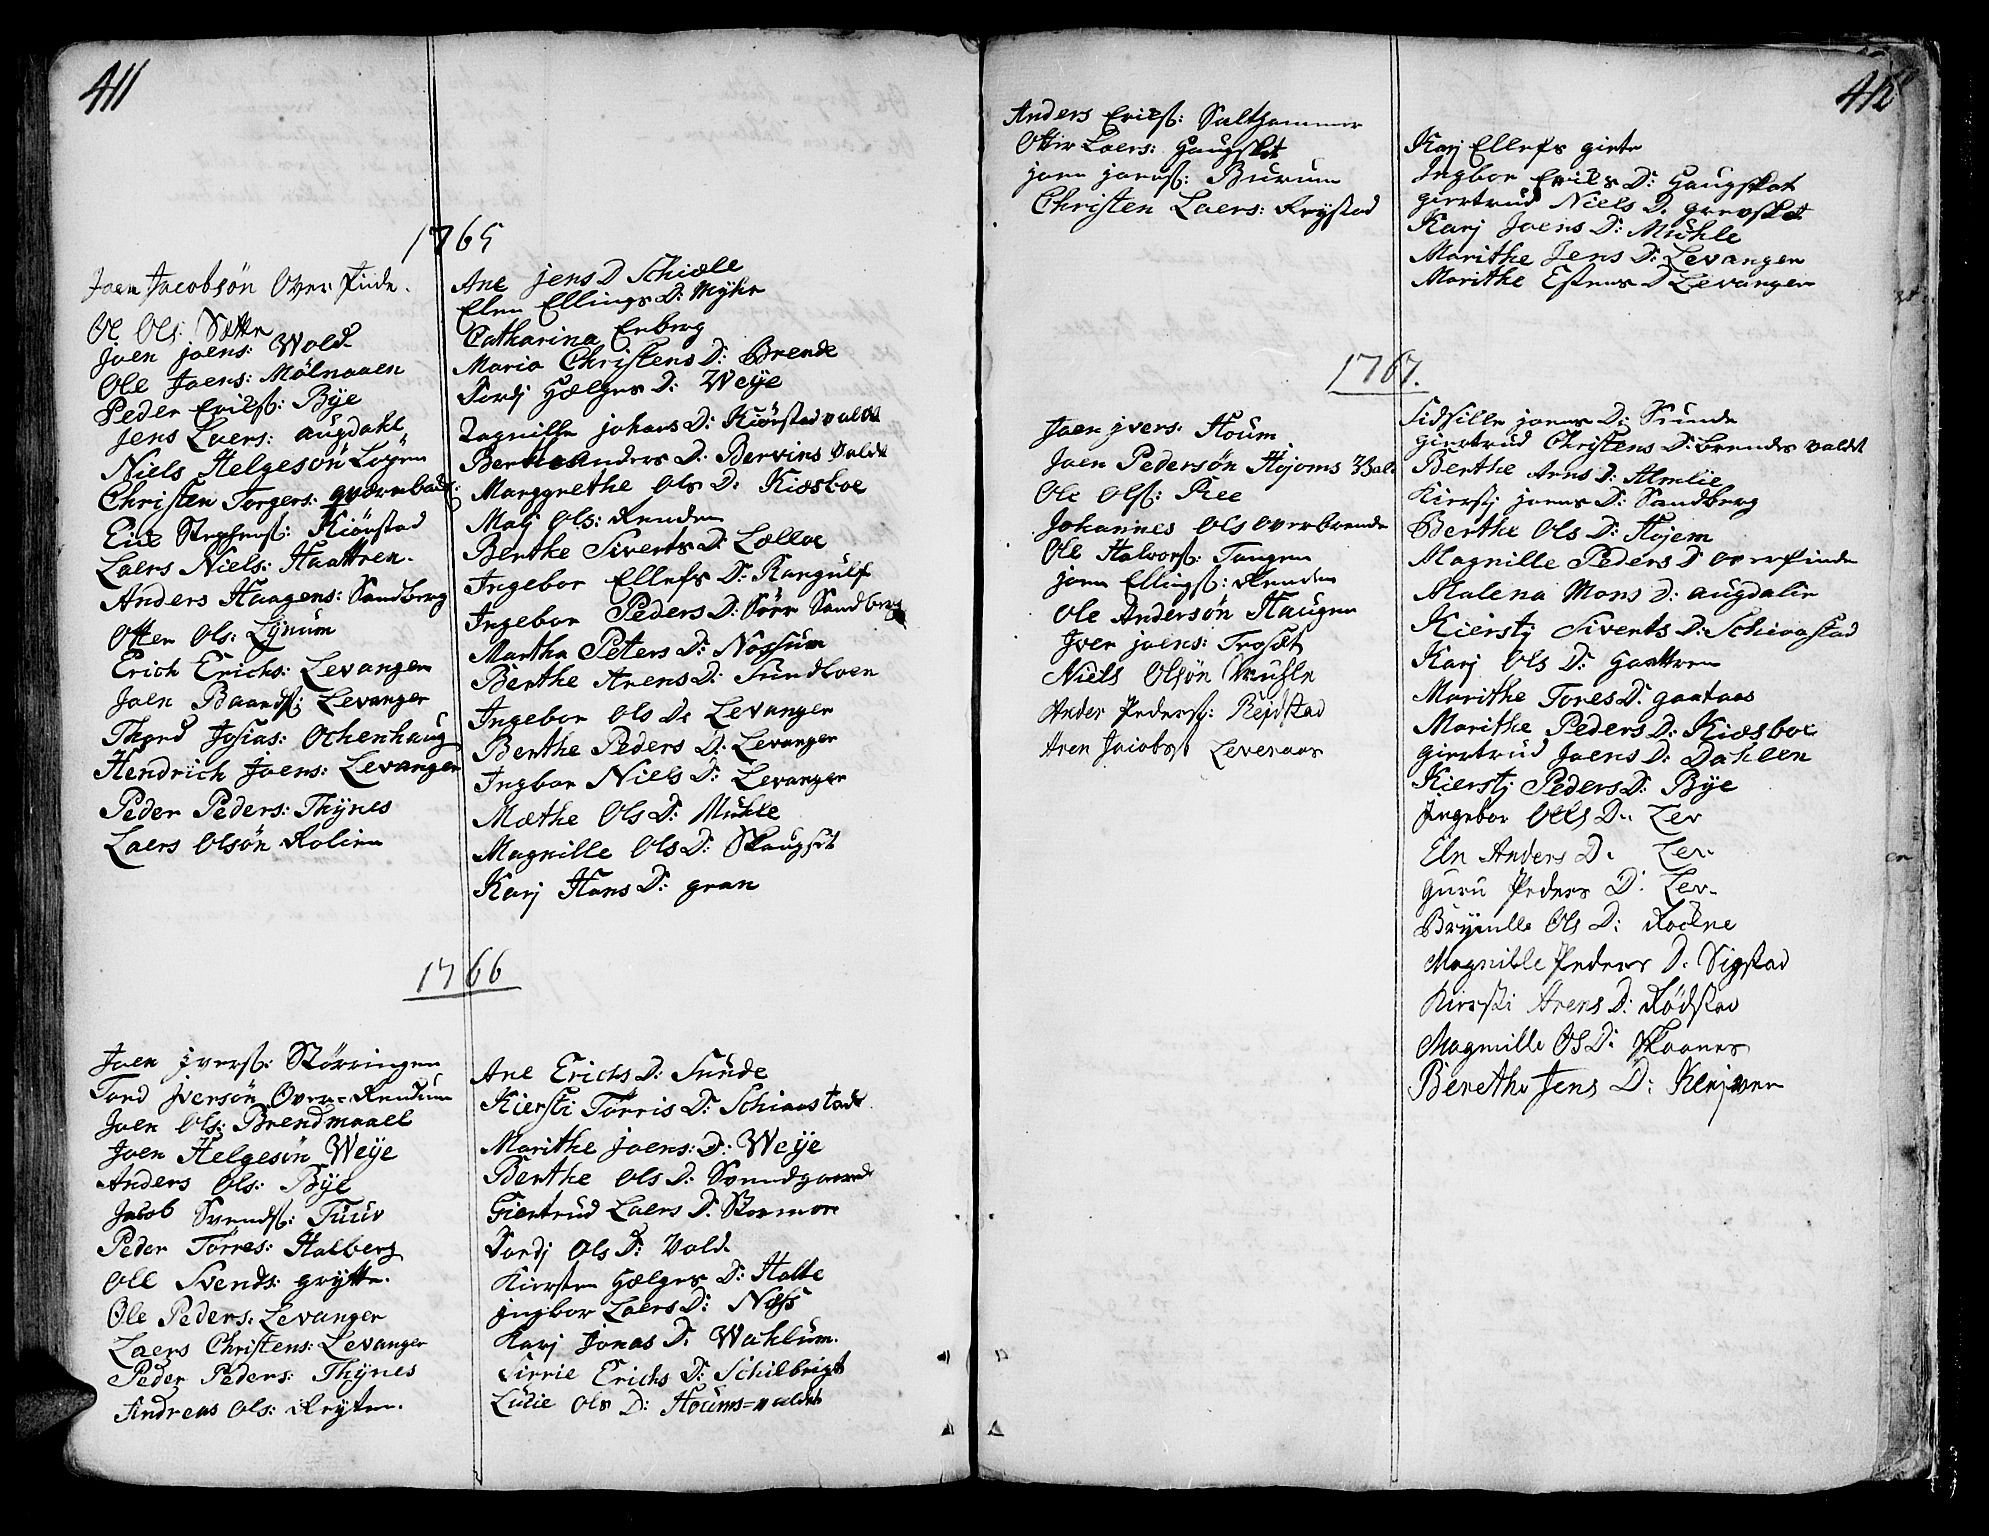 411
1765
Joen Jacobsön Over Finde.
Ol Ols: Sætter
Joen joens: Wold
Ole Joens: Mölnaaen
Peder Erichs: Bye
Jens Laers: augdahl
Niels Helgesön Logen
Christen Torgers:
Eric Stephens: Kiörstad
Laers Niels: Haattren.
Anders Haagens: Sandberg
Otter Ols: Lynum
Erich Erichs: Levanger
Joen Baards: Levanger
Thord Josias: Ochenhaug
Hendrich Joens: Levanger
Peder Peders: Thÿnes
Laers Olsön Rolien
Ane jens D Schiæle
Elen Ellings D: Myhr
Catharina Enberg
Maria Christens D: Brende
Sordj Hælges D: Weÿe
Zagnille johans D: Kiörstadvaldt
Berthe Anders D: Bervins Valdt
Marggrethe Ols D: Kiæsboe
Malj Ols: Renden
Berthe Siverts D: Lælloe
Ingebor Ellefs D: Kangulf
Ingebor Peders D: Sörr Sandberg
Martha Peters D: Nossum
Berthe Arens D: Sundloen
Ingebor Ols D: Levanger
Berthe Peders D: Levanger
Ingbor Niels D: Levanger
Mæthe Ols D: Muhle
Magnille Ols D: Skaugset
Karj Hans D: gran
1766
Joen jvers: Störringen
Tord jversön Over=Rendum
Joen Ols: Brendmoael
Joen Helgesön Weÿe
Anders Ols: Bÿe
Jacob Svends: Tuuv
Peder Torres: Halberg
Oll Svends: grÿtte.
Ole Peders: Levanger
Laers Christens: Levanger
Peder Peders: Thÿnes
Andreas Ols: Rÿten.
Ane Erichs D: Sunde
Kiersti Törris D: Schiaastadt
Marithe joens: D: Weÿe
Berthe Ols D: Svendgaard
Giertrud Laers D: Stormor
Sordj Ols D: Vold
Kiersten Hælges D: Holte
jngbor Laers D: Næss
Karj Jonas D: Wahlum.
Sirrie Erichs D: Schilbrigt
Lucie Ols D: Houms=valdet
412
Anders Erichs: Salthammer
Otter Laers: Haugsket
joen joens: Burum
Christen Laers: Rÿstad
Karj Ellefs giete
Ingbor Erichs D: Haugskat
giertrud Niels D: grevsket
Karj Joens D: Muhle
Marithe Jens D: Levanger
Marithe Estens D Levanger
1767.
Joen jvers: Houm
Joen Pedersön Hojoms Vald
Ole Ols: Ree
Johannes Ols Overbrende
Ole Halvors: Tangen
joen Ellings: Renden
Ole Andersön Haugen
Jver joens: Troset
Niels Olsön Muhle
Ander Peders: Rejdstad
Aren Jacobs: Leveraas
Sidsille joens D: Sunde
giertrud Christens D: Brendes valdt
Berthe Arns D: Almlie
Kierstj joens D: Sandberg
Berthe Ols D: Hojem
Magnille Peders D Overfinde
Malena Mons D: augdalen
Kierstj Siverts D: Schiaastad
Karj Ols D: Haattren
Marithe Tores D: gaataas
Marithe Peders D: Kiæsboe
giertrud Joens D: Dahlen
Kierstj Peders D: Bÿe
Ingebor Olls D: Lev
Eln Anders D. Lev.
Guru Peders D: Lev.
Brynille Ols D: Rockne
Magnille Peders D: Sigstad
Kirsti Arens D: Rödstad
Magnille Ols D: Skaanes
Berethe Jens D: Klejven